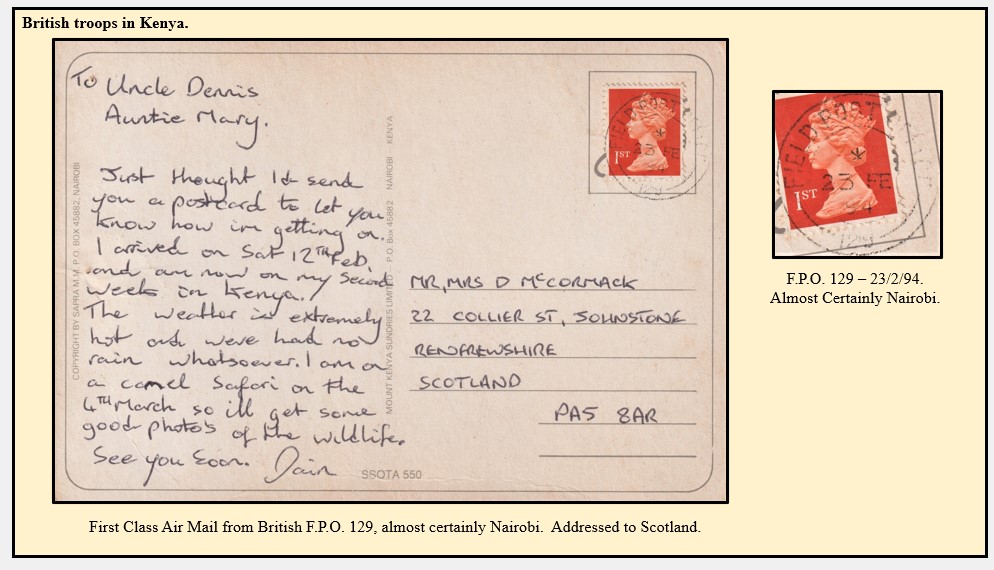 British troops in Kenya.
To Uncle Dennis
Auntie Mary.
Just thought Id send
you a postcard to let you
know how im getting on.
I arrived on Sat 12TH Feb,
and am now on my second
week in Kenya.
The weather is extremely
hot and weve had no
rain whatsoever. I am on
a camel Safari on the
4TH March so ill get some
good photo's of the wildlife.
See you Soon. Iain
COPYRIGHT BY SAPRA M.M. P.O. BOX 45882, NAIROBI
MOUNT KENYA SUNDRIES LIMITED P.O. Box 45882 NAIROBI KENYA
SSOTA 550
1ST
FIELD POST OFFICE
23 FE
129
MR, MRS D McCORMACK
22 COLLIER ST, JOHNSTONE
RENFREWSHIRE
SCOTLAND
PA5 8AR
FIELD POST
1ST
23 FE
94
129
F.P.O. 129 – 23/2/94.
Almost Certainly Nairobi.
First Class Air Mail from British F.P.O. 129, almost certainly Nairobi.  Addressed to Scotland.